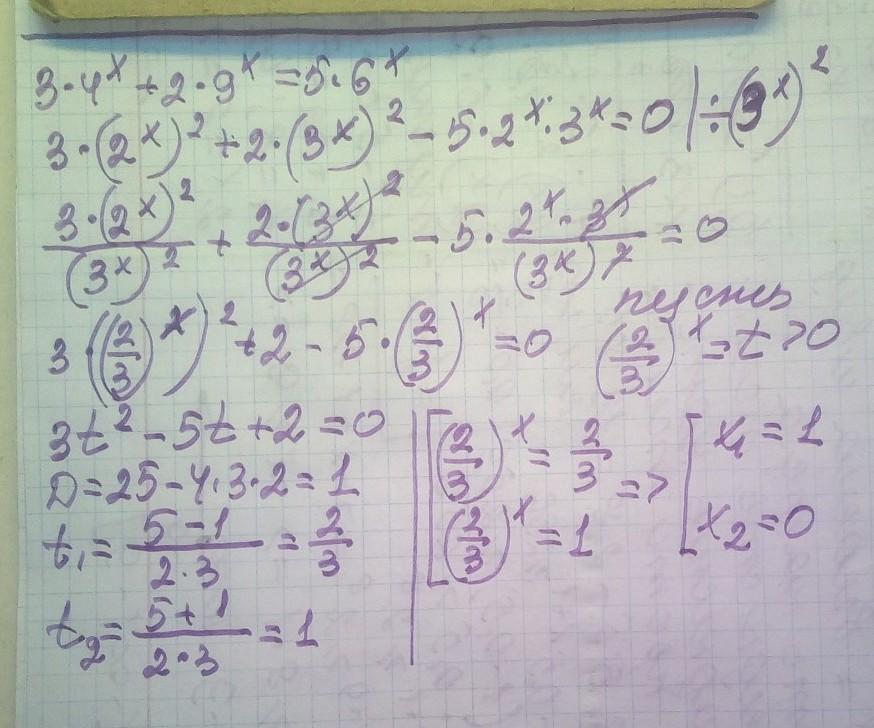 3·4^x + 2·9^x = 5·6^x
3·(2^x)^2 + 2·(3^x)^2 - 5·2^x·3^x = 0 | ÷(3^x)^2
3·(2^x)^2/(3^x)^2 + 2·(3^x)^2/(3^x)^2 - 5·2^x·3^x/(3^x)^2 = 0
пусть
3·((2/3)^x)^2 + 2 - 5·(2/3)^x = 0 (2/3)^x = t > 0
3t^2 - 5t + 2 = 0
D = 25 - 4·3·2 = 1
t₁ = (5-1)/(2·3) = 2/3
t₂ = (5+1)/(2·3) = 1
[(2/3)^x = 2/3 => [x₁ = 1
(2/3)^x = 1 x₂ = 0